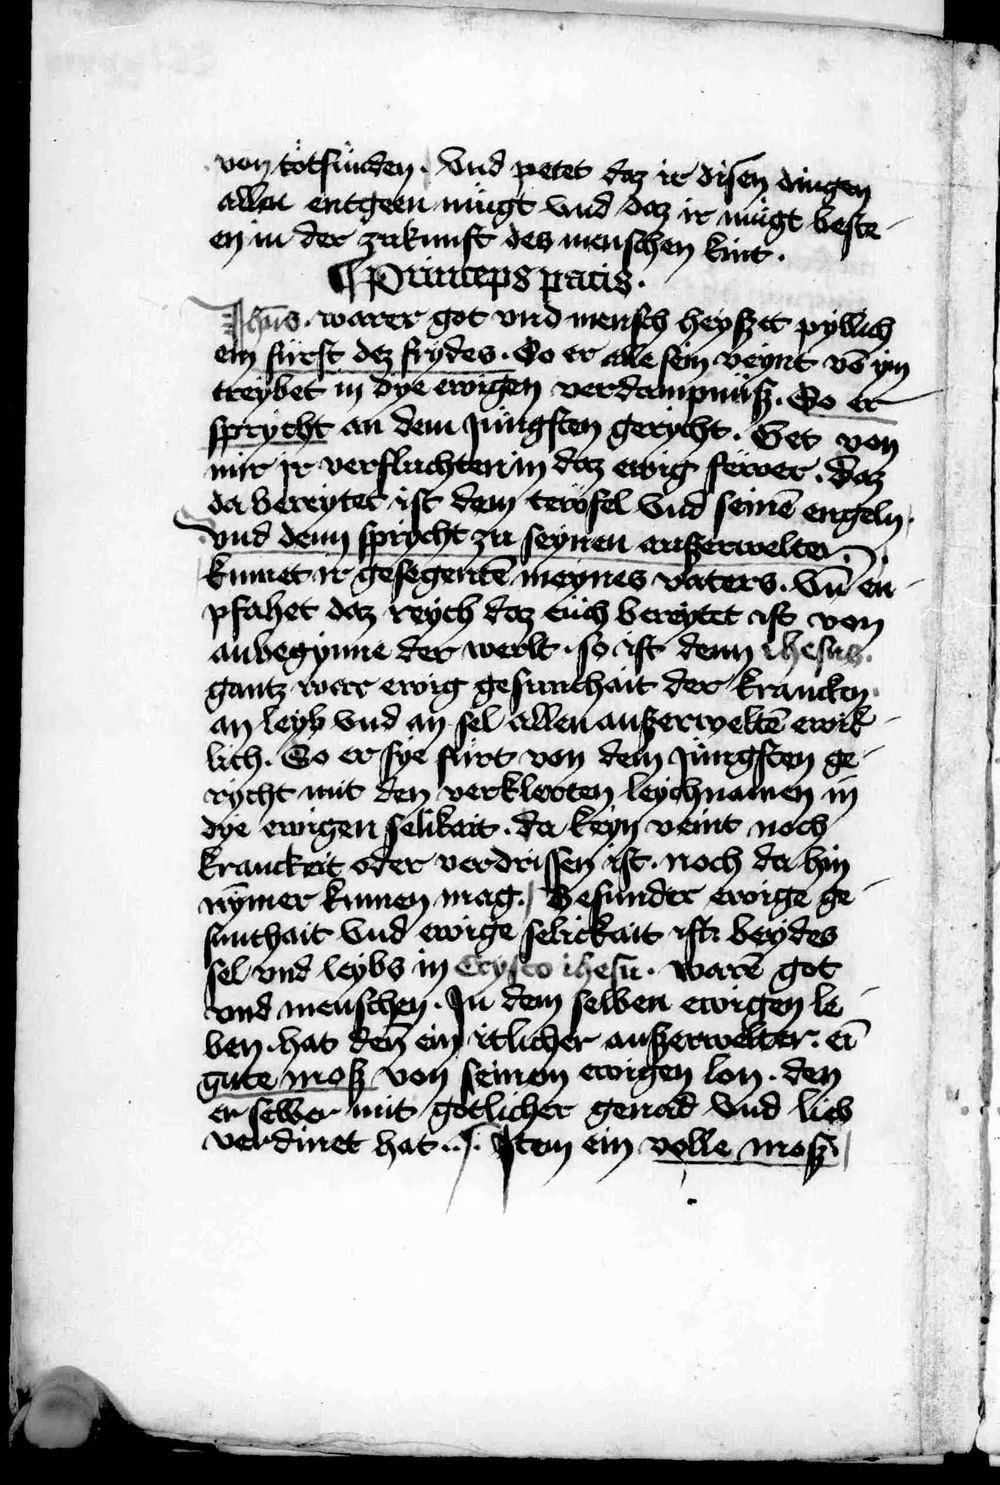 von tötsünden. Vnd petet daz ir disen dingen
allen entgeen mügt vnd daz ir mügt beste-
en in der zukunft des menschen kint.
¶ Princeps pacis.
Jhūs. warer got vnd mensch heyszet pyllich
ein fürst dez frydes. So er alle sein veynt vō ym
treybet in dye ewigen verdampnüsz. So er
sprycht an dem Jüngsten gerycht. Get von
mir ir verfluchten in daz ewig fewer. daz
da bereytet ist dem tewfel vnd seinē engeln.
vnd denn sprycht zu seynen auszerwelten.
kumet ir gesegentē meynes vaters. vn̄ en-
pfahet daz reych daz euch bereytet ist von
anbegynne der werlt. so ist denn ihesus.
gantz war ewig gesunthait der krancken.
an leyb vnd an sel allen auszerweltē ewik-
lich. So er sye fürt von dem Jüngsten ge-
rycht mit den verklerten leychnamen in
dye ewigen selikait. da keyn veint noch
kranckeit oder verdrissen ist. noch da hin
nȳmer kumen mag. Besunder ewige ge-
sunthait vnd ewige selickait ist. beydes
sel vnd leybs in Crysto ihesu. warē got
vnd menschen. Jn dem selben ewigen le-
ben. hat den̄ ein itlicher auszerwelter. eī
gute mosz von seinem ewigen lon. den
er selber mit gotlicher genad vnd lieb
verdinet hat. Jtem ein volle mosz.